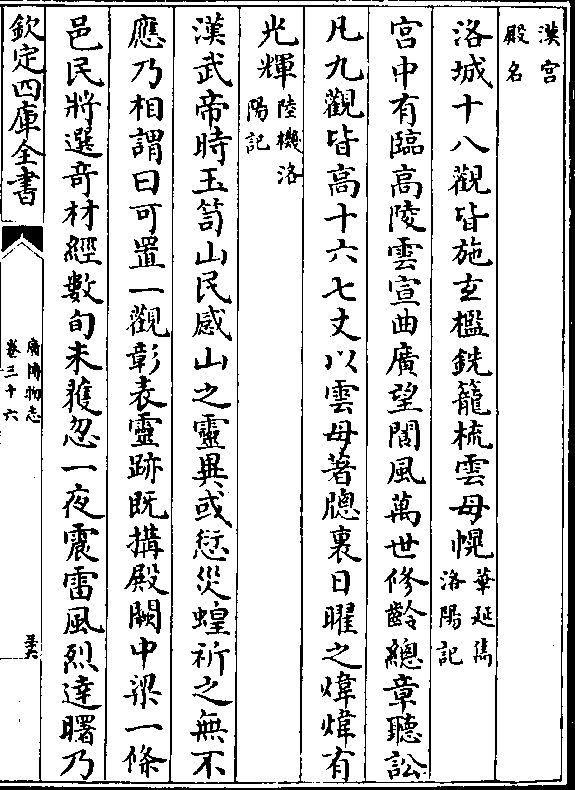 漢宮
殿名
洛城十八觀皆施玄檻銑籠梳雲母幌華延儁
洛陽記
宮中有臨高陵雲宣曲廣望閬風萬世修齡總章聽訟
凡九觀皆高十六七丈以雲母著牕裏日曜之煒煒有
光輝陸機洛
陽記
漢武帝時玉笥山民感山之靈異或愆災蝗祈之無不
應乃相謂曰可置一觀彰表靈跡既搆殿闕中梁一條
邑民將選竒材經數旬未獲忽一夜震雷風烈達曙乃
欽定四庫全書
廣博物志
卷三十六